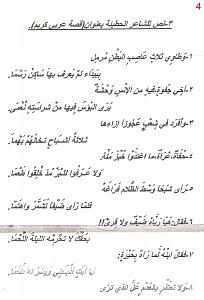 4
٣-نص للشاعر الحطيئة بعنوان(قصة عربي كريم).
١-وطاوي ثلاث عاصب البطن مرمل
ببيداء لم يعرف بها ساكن رسما.
٢-أخي جفوة فيه من الأنس وحشة
يرى البؤس فيها من شراسته نعمى.
٣-وأفرد في شعب عجوزا إزاءها
ثلاثة أشباح تخالهم بهما.
٤-حفاة عراة ما اغتذوا خبز ملة
ولا عرفوا للبر مذ خلقوا طعما.
٥-رأى شبحا وسط الظلام فراعه
فلما رأى ضيفا تشمر واهتما.
٦-فقال هيا رباه ضيف ولا قرى!!
بحقك لا تحرمه الليلة اللحما.
٧-فقال ابنه لما رآه بحيرة:
أيا أبت اذبحني ويسر له طعما.
٨-ولا تعتذر بالعدم عل الذي ترى